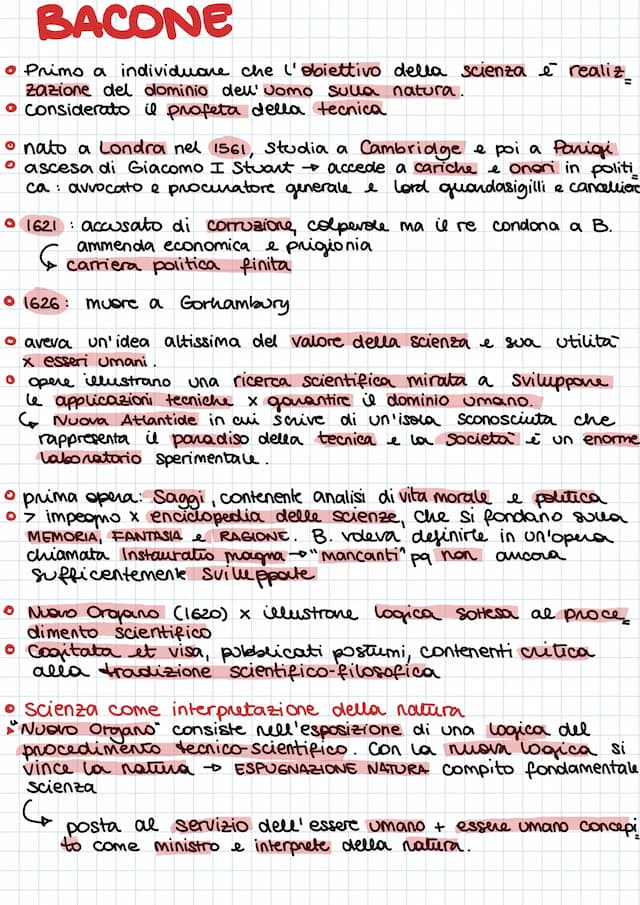 BACONE
Primo a individuare che l'obiettivo della scienza è realiz=
zazione del dominio dell'uomo sulla natura.
considerato il profeta della tecnica
nato a Londra nel 1561, studia a Cambridge e poi a Parigi
ascesa di Giacomo I Stuart → accede a cariche e onori in politi=
ca: avvocato e procuratore generale e lord guardasigilli e cancelliere
1621: accusato di corruzione, colpevole ma il re condona a B.
ammenda economica e prigionia
↳ carriera politica finita
1626: muore a Gorhambury
aveva un'idea altissima del valore della scienza e sua utilità
x esseri umani.
opere illustrano una ricerca scientifica mirata a sviluppare
le applicazioni tecniche x garantire il dominio umano.
↳ Nuova Atlantide in cui scrive di un'isola sconosciuta che
rappresenta il paradiso della tecnica e la società è un enorme
laboratorio sperimentale.
prima opera: Saggi, contenente analisi di vita morale e politica
> impegno x enciclopedia delle scienze, che si fondano sulla
MEMORIA, FANTASIA e RAGIONE. B. voleva definirle in un'opera
chiamata Instauratio magna → "mancanti" pq non ancora
sufficentemente sviluppate
Nuovo Organo (1620) x illustrare logica sottesa al proce=
dimento scientifico
Cogitata et visa, pubblicati postumi, contenenti critica
alla tradizione scientifico-filosofica
Scienza come interpretazione della natura
"Nuovo Organo" consiste nell'esposizione di una logica del
procedimento tecnico-scientifico. Con la nuova logica si
vince la natura → ESPUGNAZIONE NATURA compito fondamentale
scienza
↳ posta al servizio dell'essere umano + essere umano concepi
to come ministro e interprete della natura.